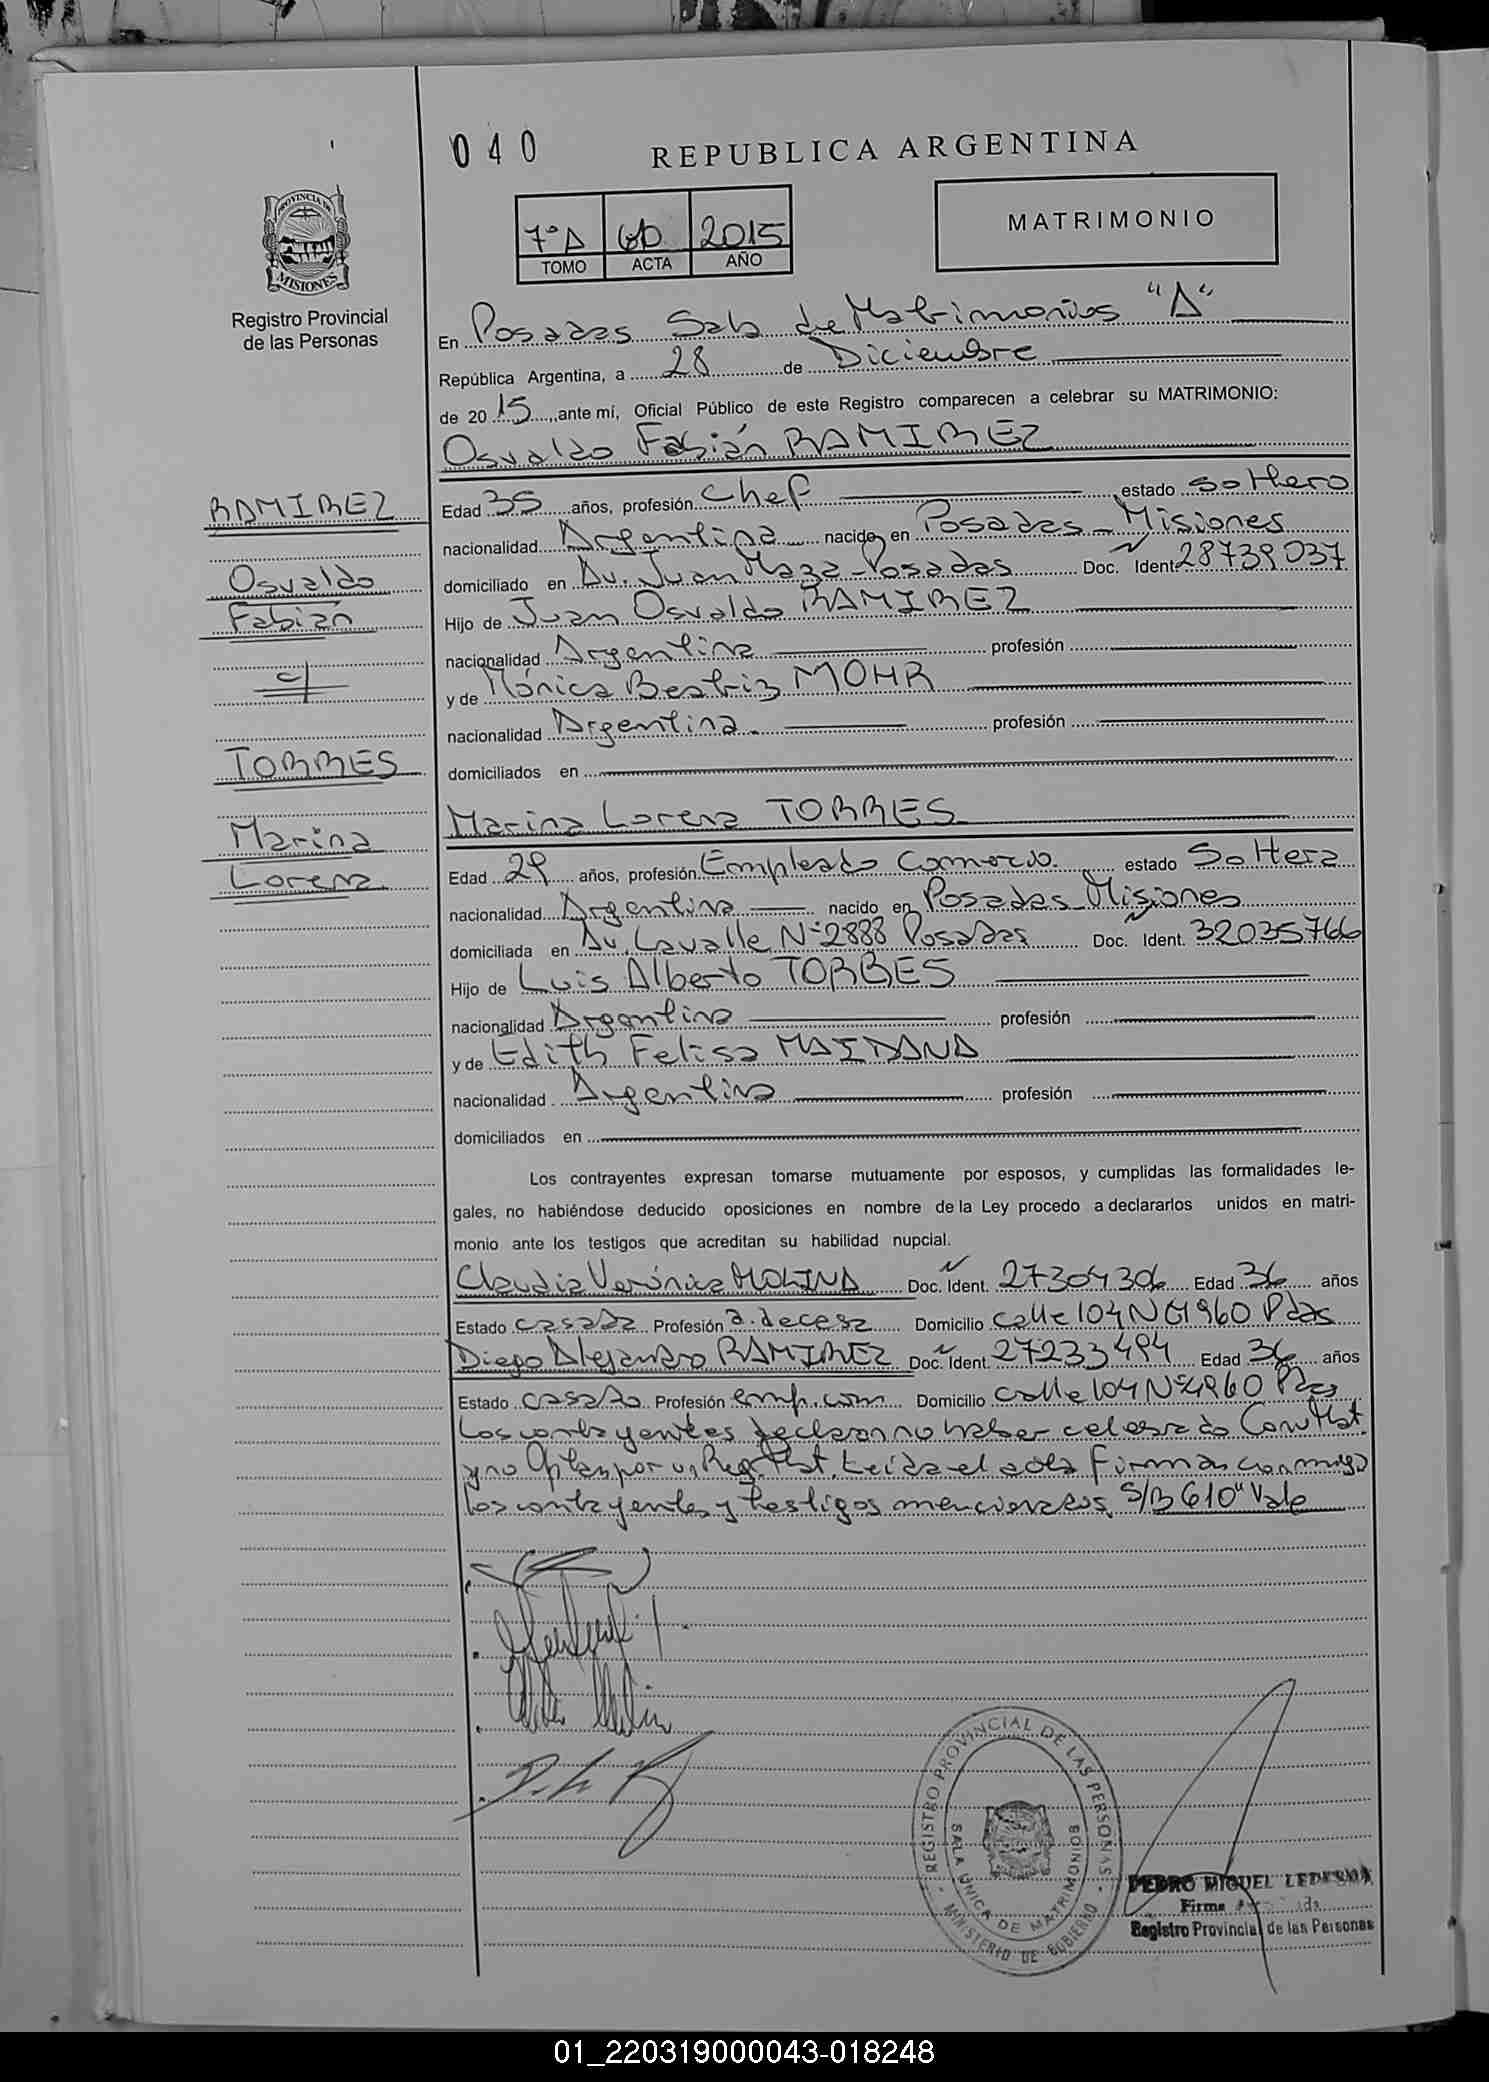 040
REPUBLICA ARGENTINA
PROVINCIA DE
MISIONES
Registro Provincial
de las Personas
7° A 2015
TOMO ACTA AÑO
MATRIMONIO
En Posadas Sala de Matrimonios "A"
República Argentina, a 28 de Diciembre
de 2015, ante mí, Oficial Público de este Registro comparecen a celebrar su MATRIMONIO:
Osvaldo Fabián RAMIREZ
RAMIREZ
Osvaldo
Fabián
c/
TORRES
Marina
Lorena
Edad 35 años, profesión Chef estado Soltero
nacionalidad Argentina nacido en Posadas - Misiones
domiciliado en Av. Juan Maza - Posadas Doc. Ident. 28739037
Hijo de Juan Osvaldo RAMIREZ
nacionalidad Argentina profesión
y de Mónica Beatriz MOHR
nacionalidad Argentina. profesión
domiciliados en
Marina Lorena TORRES
Edad 29 años, profesión Empleado Comercio. estado Soltera
nacionalidad Argentina nacido en Posadas - Misiones
domiciliada en Av. Lavalle N° 2888 Posadas Doc. Ident. 32035766
Hijo de Luis Alberto TORRES
nacionalidad Argentina profesión
y de Edith Felisa MAIDANA
nacionalidad Argentina profesión
domiciliados en
Los contrayentes expresan tomarse mutuamente por esposos, y cumplidas las formalidades le-
gales, no habiéndose deducido oposiciones en nombre de la Ley procedo a declararlos unidos en matri-
monio ante los testigos que acreditan su habilidad nupcial.
Claudia Verónica MOLINA Doc. Ident. 27304306 Edad 36 años
Estado casada Profesión a. de casa Domicilio calle 104 N° 4960 Pdas
Diego Alejandro RAMIREZ Doc. Ident. 27233494 Edad 36 años
Estado casado Profesión emp. com Domicilio calle 104 N° 4960 Pdas
Los contrayentes declaran no haber celebrado Conv Mat.
y no Optan por un Reg. Mat. Leida el acta Firman conmigo
los contrayentes y testigos mencionados. S/B 610" Vale
REGISTRO PROVINCIAL DE LAS PERSONAS
SALA UNICA DE MATRIMONIOS
MINISTERIO DE GOBIERNO
PEDRO MIGUEL LEDESMA
Firma
Registro Provincial de las Personas
01_220319000043-018248